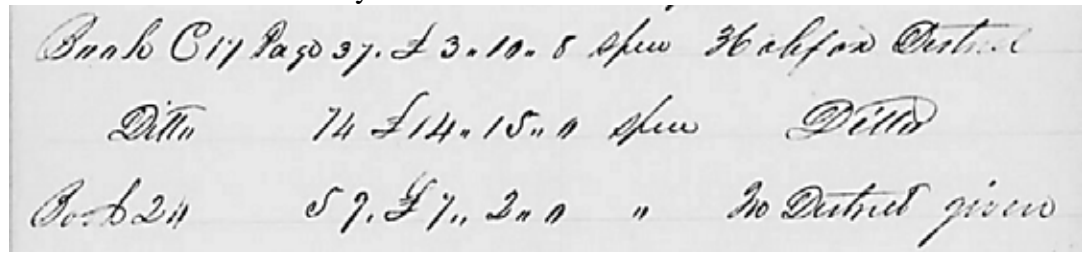 Book C 17 Page 37. £ 3 „ 10 „ 8 spec Halifax District
Ditto 74 £ 14 „ 15 „ 0 spec Ditto
Book 24 59. £ 7 „ 2 „ 0 „ No District given